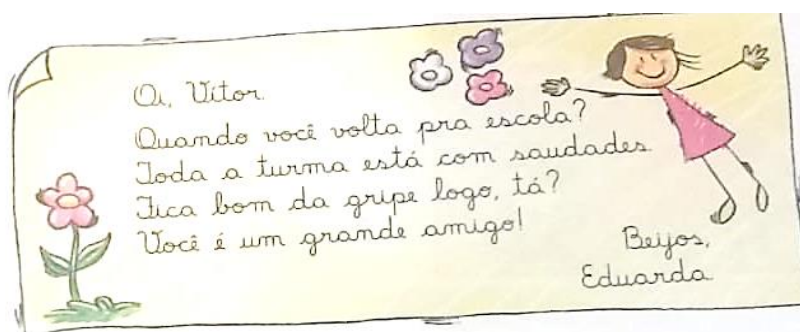 Oi, Vitor.
Quando você volta pra escola?
Toda a turma está com saudades.
Fica bom da gripe logo, tá?
Você é um grande amigo!
Beijos,
Eduarda